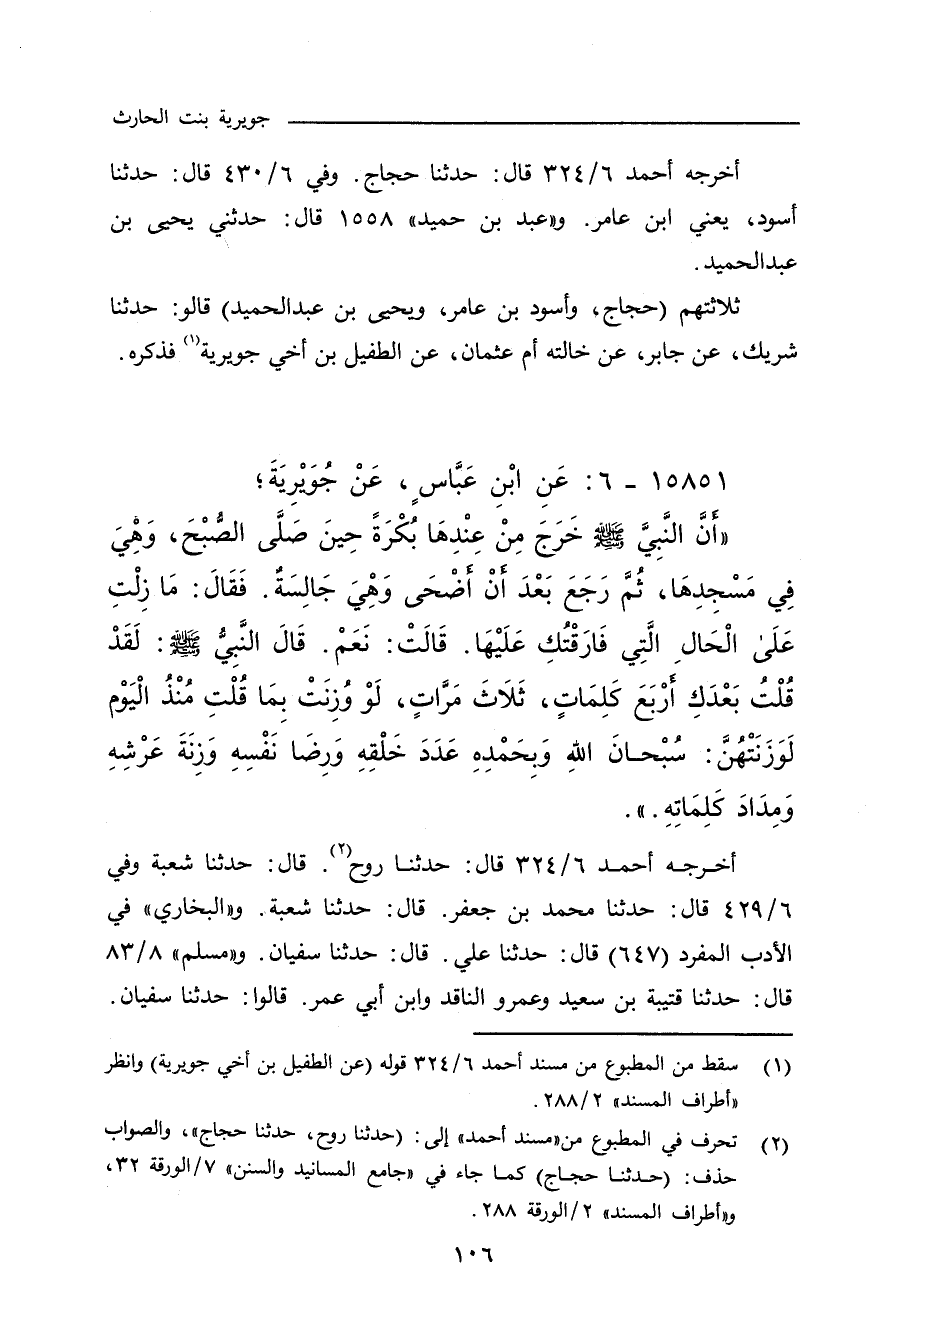 جويرية بنت الحارث
أخرجه أحمد ٣٢٤/٦ قال: حدثنا حجاج. وفي ٤٣٠/٦ قال: حدثنا
أسود، يعني ابن عامر. و«عبد بن حميد» ١٥٥٨ قال: حدثني يحيى بن
عبدالحميد.
ثلاثتهم (حجاج، وأسود بن عامر، ويحيى بن عبدالحميد) قالو: حدثنا
شريك، عن جابر، عن خالته أم عثمان، عن الطفيل بن أخي جويرية(١) فذكره.
١٥٨٥١ - ٦: عَنِ ابْنِ عَبَّاسٍ، عَنْ جُوَيْرِيَةَ؛
«أَنَّ النَّبِيَّ ﷺ خَرَجَ مِنْ عِنْدِهَا بُكْرَةً حِينَ صَلَّى الصُّبْحَ، وَهْيَ
فِي مَسْجِدِهَا، ثُمَّ رَجَعَ بَعْدَ أَنْ أَضْحَى وَهْيَ جَالِسَةٌ. فَقَالَ: مَا زِلْتِ
عَلَىٰ الْحَالِ الَّتِي فَارَقْتُكِ عَلَيْهَا. قَالَتْ: نَعَمْ. قَالَ النَّبِيُّ ﷺ: لَقَدْ
قُلْتُ بَعْدَكِ أَرْبَعَ كَلِمَاتٍ، ثَلَاثَ مَرَّاتٍ، لَوْ وُزِنَتْ بِمَا قُلْتِ مُنْذُ الْيَوْمِ
لَوَزَنَتْهُنَّ: سُبْحَانَ اللهِ وَبِحَمْدِهِ عَدَدَ خَلْقِهِ وَرِضَا نَفْسِهِ وَزِنَةَ عَرْشِهِ
وَمِدَادَ كَلِمَاتِهِ.».
أخرجه أحمد ٣٢٤/٦ قال: حدثنا روح(٢). قال: حدثنا شعبة وفي
٤٢٩/٦ قال: حدثنا محمد بن جعفر. قال: حدثنا شعبة. و«البخاري» في
الأدب المفرد (٦٤٧) قال: حدثنا علي. قال: حدثنا سفيان. و«مسلم» ٨٣/٨
قال: حدثنا قتيبة بن سعيد وعمرو الناقد وابن أبي عمر. قالوا: حدثنا سفيان.
(١) سقط من المطبوع من مسند أحمد ٣٢٤/٦ قوله (عن الطفيل بن أخي جويرية) وانظر
«أطراف المسند» ٢٨٨/٢.
(٢) تحرف في المطبوع من«مسند أحمد» إلى: (حدثنا روح، حدثنا حجاج»، والصواب
حذف: (حدثنا حجاج) كما جاء في «جامع المسانيد والسنن» ٧/الورقة ٣٢،
و«أطراف المسند» ٢/الورقة ٢٨٨.
١٠٦